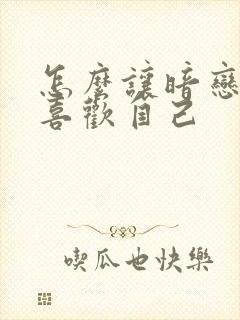 怎麼讓暗戀
喜歡自己
喫瓜也快樂